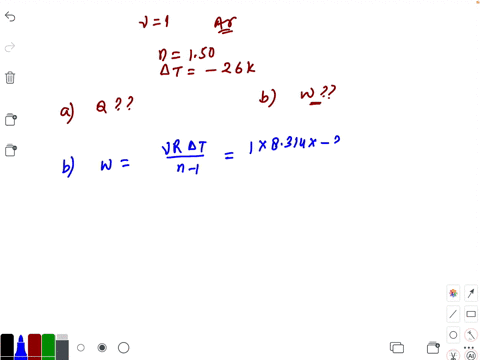 ν=1 Ar
n=1.50
ΔT = −26K
a) Q ?? b) W ??
b) W = νRΔT / n−1 = 1×8.314×−2